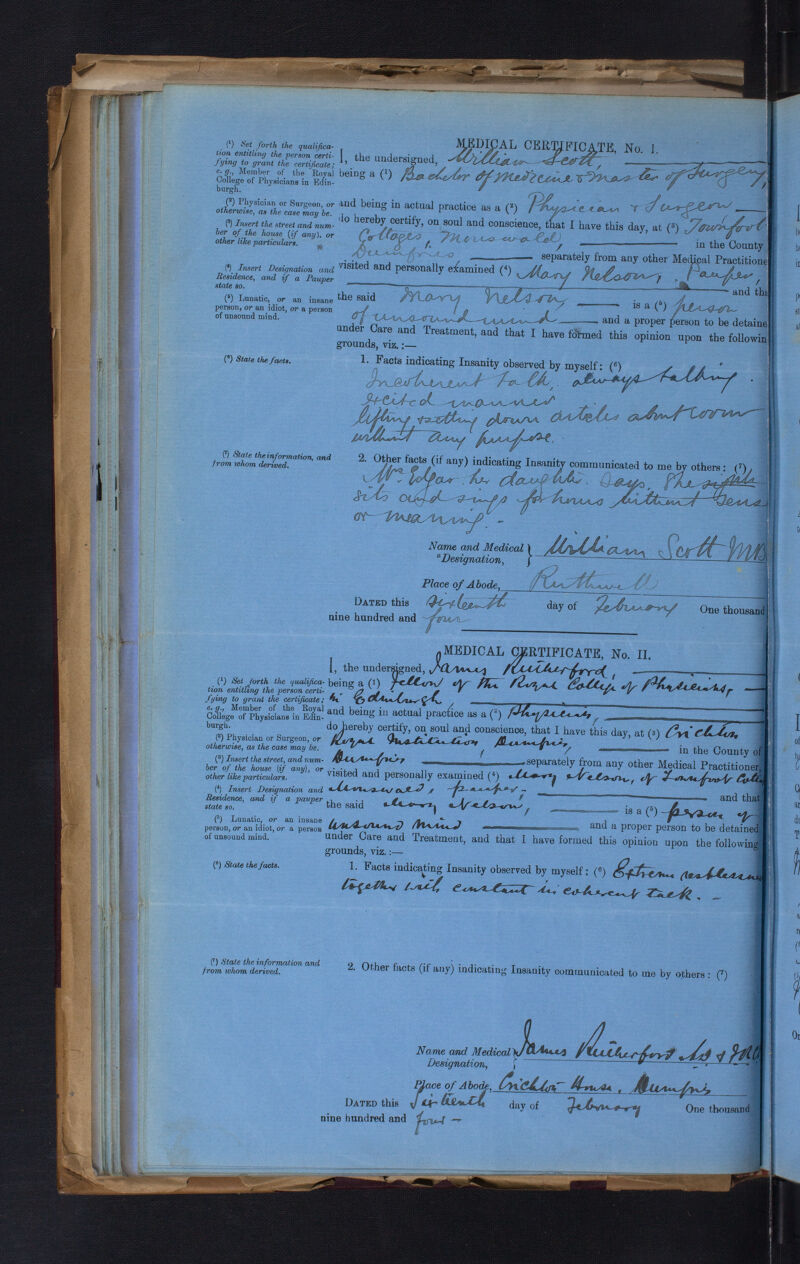 MEDICAL CERTIFICATE, No. I.
(¹) Set forth the qualifica-
tion entitling the person certi-
fying to grant the certificate;
e. g., Member of the Royal
College of Physicians in Edin-
burgh.
I, the undersigned, William Scott,
being a (¹) Bachelor of Medicine & Master of Surgery,
(²) Physician or Surgeon, or
otherwise, as the case may be.
and being in actual practice as a (²) Physician & Surgeon
(³) Insert the street and num-
ber of the house (if any), or
other like particulars.
do hereby certify, on soul and conscience, that I have this day, at (³) Townfoot
Cottages, Mouswald, in the County
Dumfries, separately from any other Medical Practitione
(⁴) Insert Designation and
Residence, and if a Pauper
state so.
visited and personally examined (⁴) Mary Nelson, Pauper,
and tha
(⁵) Lunatic, or an insane
person, or an idiot, or a person
of unsound mind.
the said Mary Nelson is a (⁵) person
of unsound mind and a proper person to be detaine
under Care and Treatment, and that I have formed this opinion upon the followin
grounds, viz.:—
(⁶) State the facts.
1. Facts indicating Insanity observed by myself: (⁶)
Incoherent talk, always talking.
excited manner
lifting & setting down articles about room
without any purpose.
(⁷) State the information, and
from whom derived.
2. Other facts (if any) indicating Insanity communicated to me by others: (⁷)
Mrs. Edgar her daughter says, She
sits and sings for hours without sens
or meaning. -
Name and Medical
Designation, William Scott MB
Place of Abode, Ruthwell
DATED this Sixteenth day of February One thousand
nine hundred and four
MEDICAL CERTIFICATE, No. II.
I, the undersigned, James Rutherford,
(¹) Set forth the qualifica-
tion entitling the person certi-
fying to grant the certificate;
e. g., Member of the Royal
College of Physicians in Edin-
burgh.
being a (¹) Fellow of the Royal College of Physicians,
in Edinburgh,
and being in actual practice as a (²) Physician,
(²) Physician or Surgeon, or
otherwise, as the case may be.
do hereby certify, on soul and conscience, that I have this day, at (³) Crichton
Royal Institution, Dumfries, in the County of
(³) Insert the street, and num-
ber of the house (if any), or
other like particulars.
Dumfries separately from any other Medical Practitioner,
visited and personally examined (⁴) Mary Nelson, of Townfoot Cotta
(⁴) Insert Designation and
Residence, and if a pauper
state so.
Mouswald, pauper, and that
the said Mary Nelson, is a (⁵) person of
(⁵) Lunatic, or an insane
person, or an idiot, or a person
of unsound mind.
unsound mind and a proper person to be detained
under Care and Treatment, and that I have formed this opinion upon the following
grounds, viz.:—
(⁶) State the facts.
1. Facts indicating Insanity observed by myself: (⁶) Extreme restlessne
together with constant incoherent talk. -
(⁷) State the information and
from whom derived.
2. Other facts (if any) indicating Insanity communicated to me by others: (⁷)
Name and Medical
Designation, James Rutherford
Place of Abode, Crichton House, Dumfries
DATED this Sixteenth day of February One thousand
nine hundred and four —